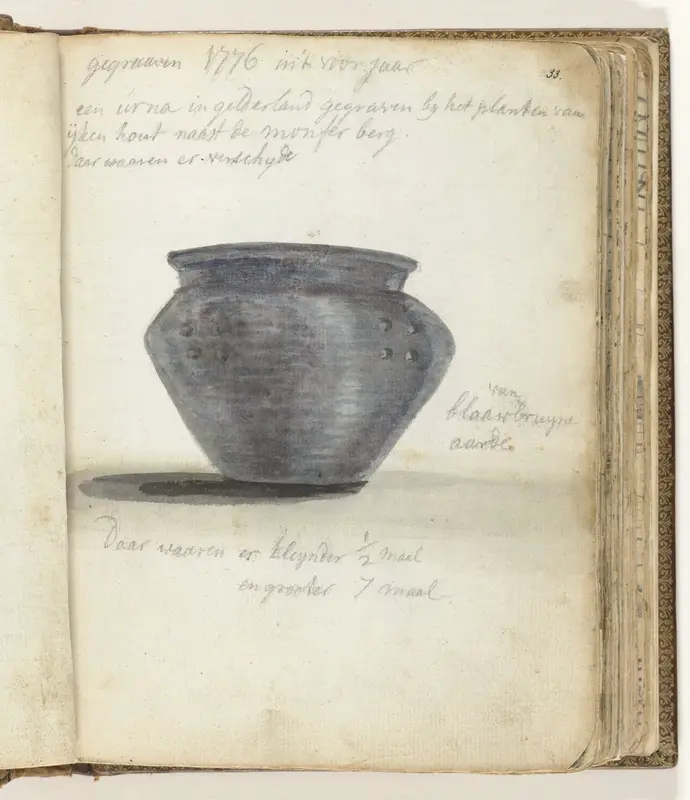 gegraaven 1776 in't voorjaar
33.
een urna in gelderland gegraven by het planten van
ijken hout naast de monfer berg.
daar waaren er verschyde
van
blaawbruyne
aarde.
Daar waaren er kleynder ½ maal
en grooter 7 maal